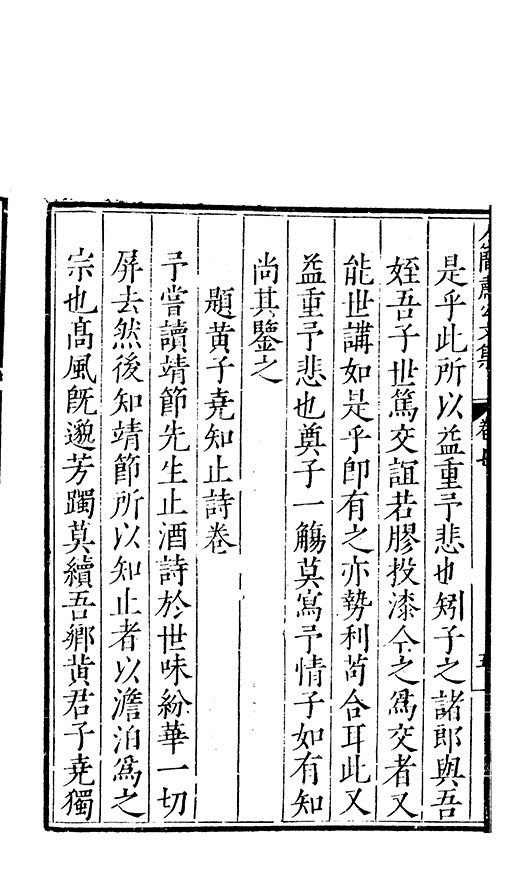 是乎此所以益重予悲也矧子之諸郎與吾
姪吾子世篤交誼若膠投漆今之爲交者又
能世講如是乎卽有之亦勢利苟合耳此又
益重予悲也奠子一觴莫寫予情子如有知
尚其鑒之
題黃子堯知止詩卷
予嘗讀靖節先生止酒詩於世味紛華一切
屏去然後知靖節所以知止者以澹泊爲之
宗也高風旣邈芳躅莫續吾鄉黃君子堯獨